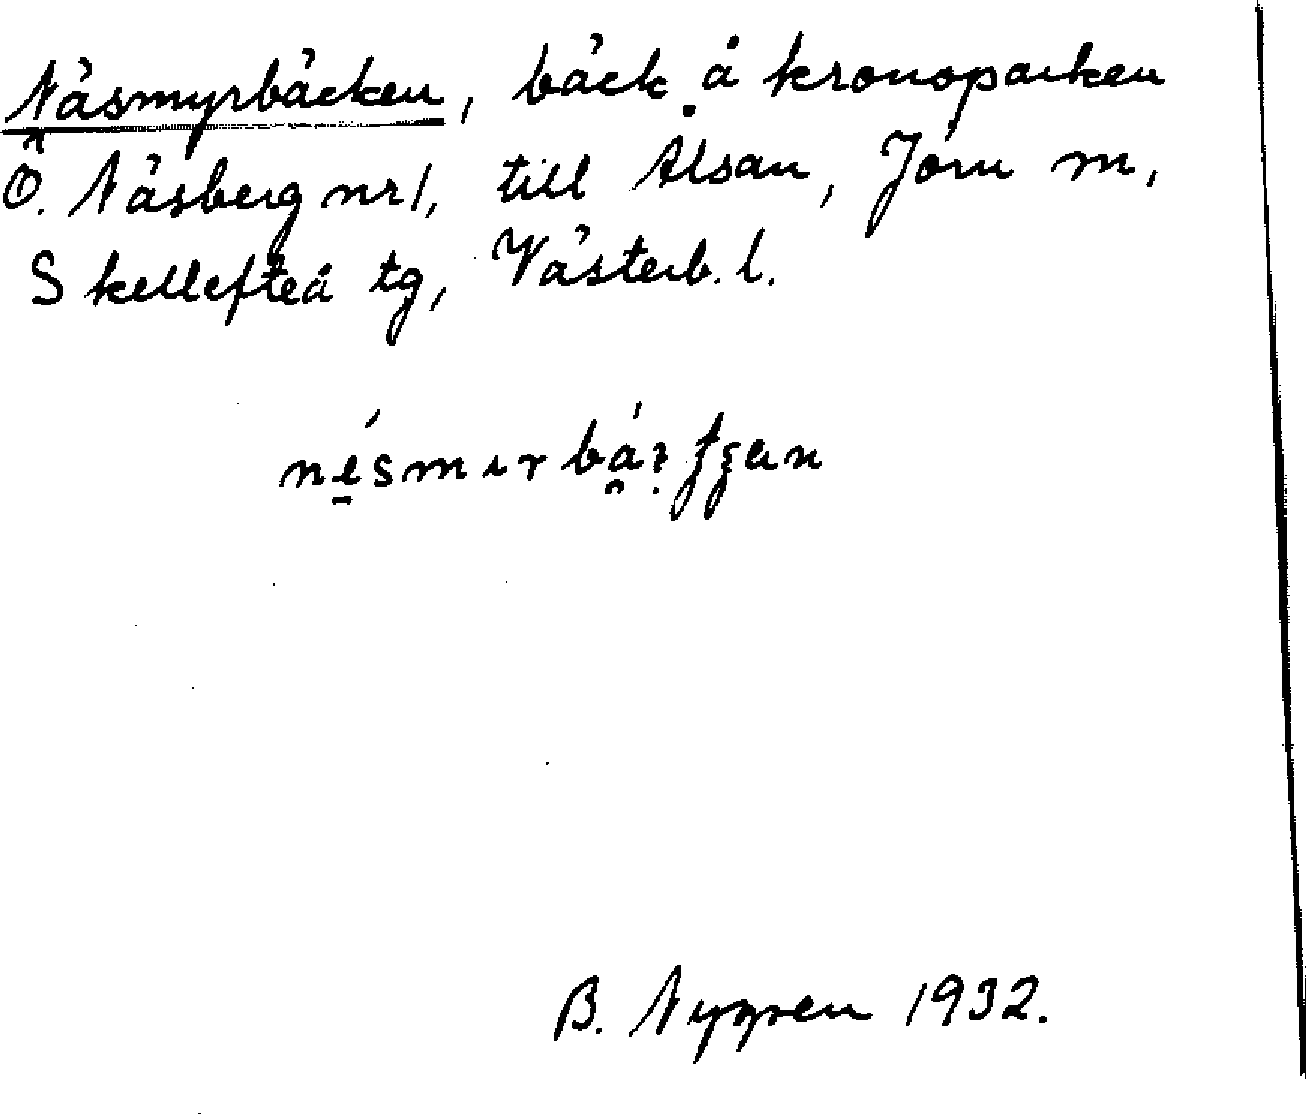 Näsmyrbäcken, bäck å kronoparken
Ö. Näsberg nr 1, till Ålsån, Jörn m,
Skellefteå tg, Västerb. l.
B. Nygren 1932.